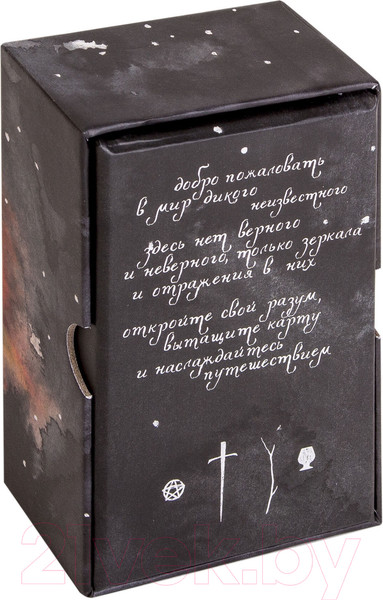 добро пожаловать
в мир дикого неизвестного
здесь нет верного
и неверного, только зеркала
и отражения в них
откройте свой разум,
вытащите карту
и наслаждайтесь
путешествием
21vek.by